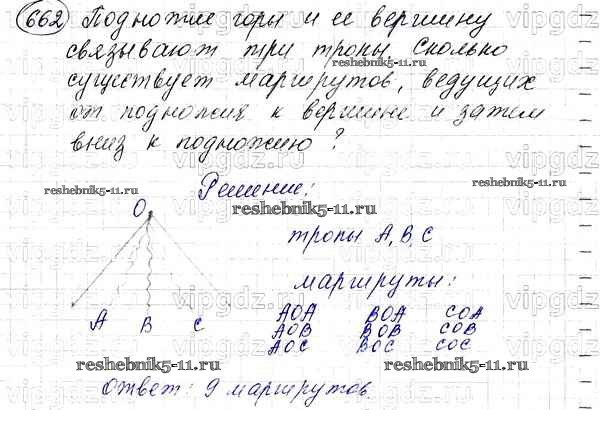 662 Подножие горы и ее вершину
связывают три тропы. Сколько
существует маршрутов, ведущих
от подножия к вершине и затем
вниз к подножию?
reshebnik5-11.ru
Решение:
reshebnik5-11.ru
O
тропы A, B, C
маршруты:
A B C
AOA BOA COA
AOB BOB COB
AOC BOC COC
reshebnik5-11.ru
reshebnik5-11.ru
Ответ: 9 маршрутов.
vipgdz.ru